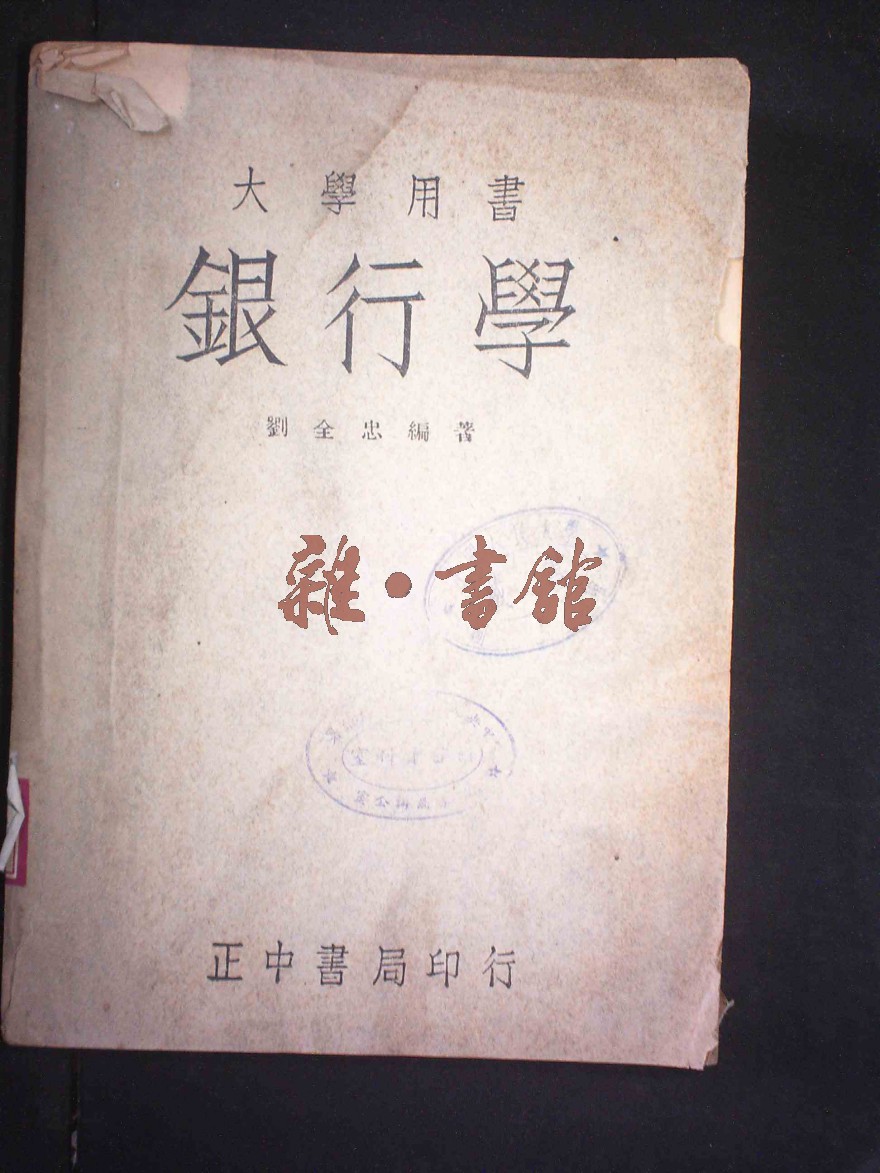 大學用書
銀行學
劉全忠編著
雜·書館
正中書局印行